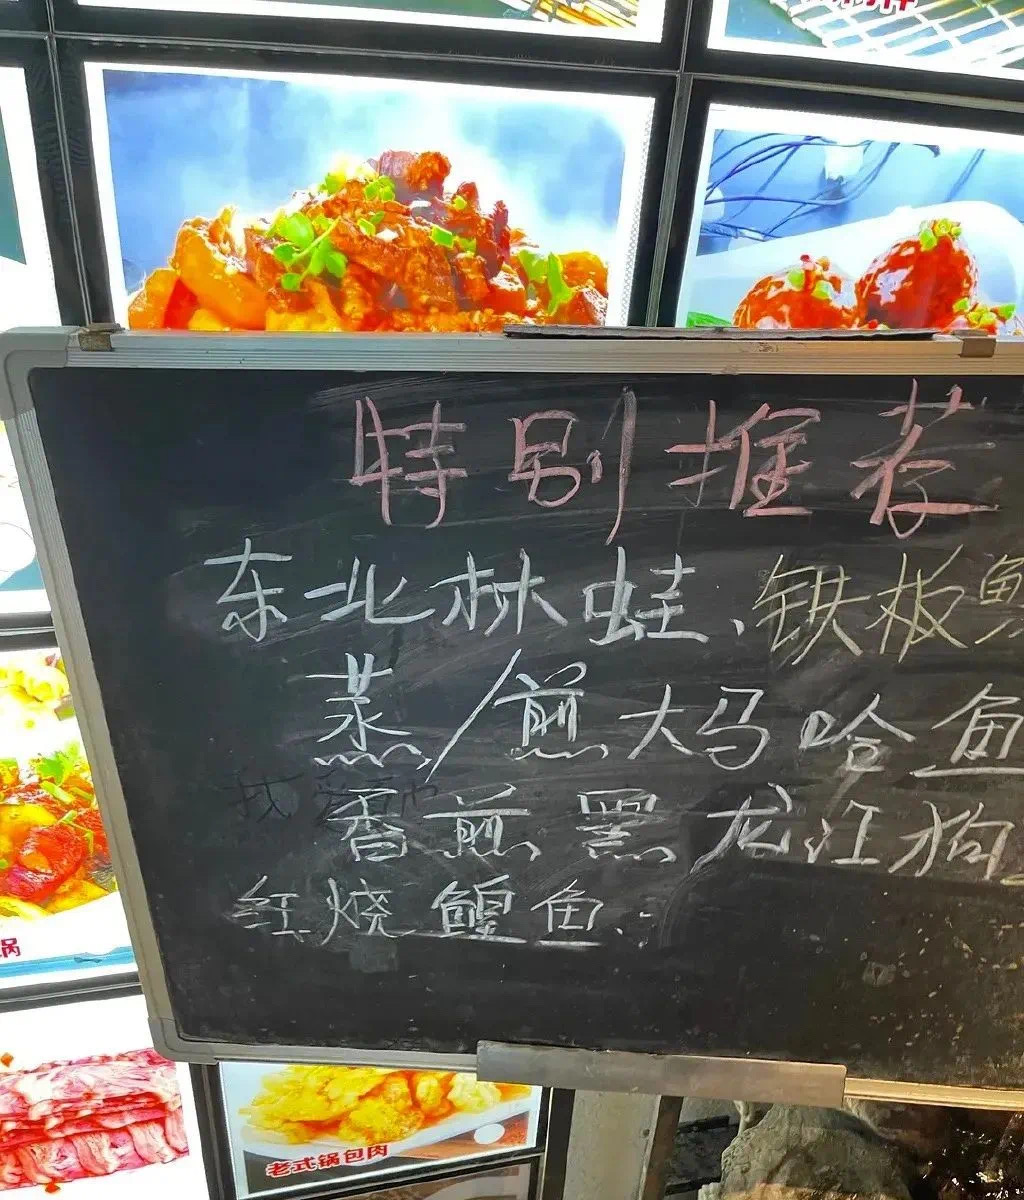 特别推荐
东北林蛙、铁板
蒸/煎大马哈鱼
香煎黑龙江狗
红烧鳇鱼.
锅
老式锅包肉